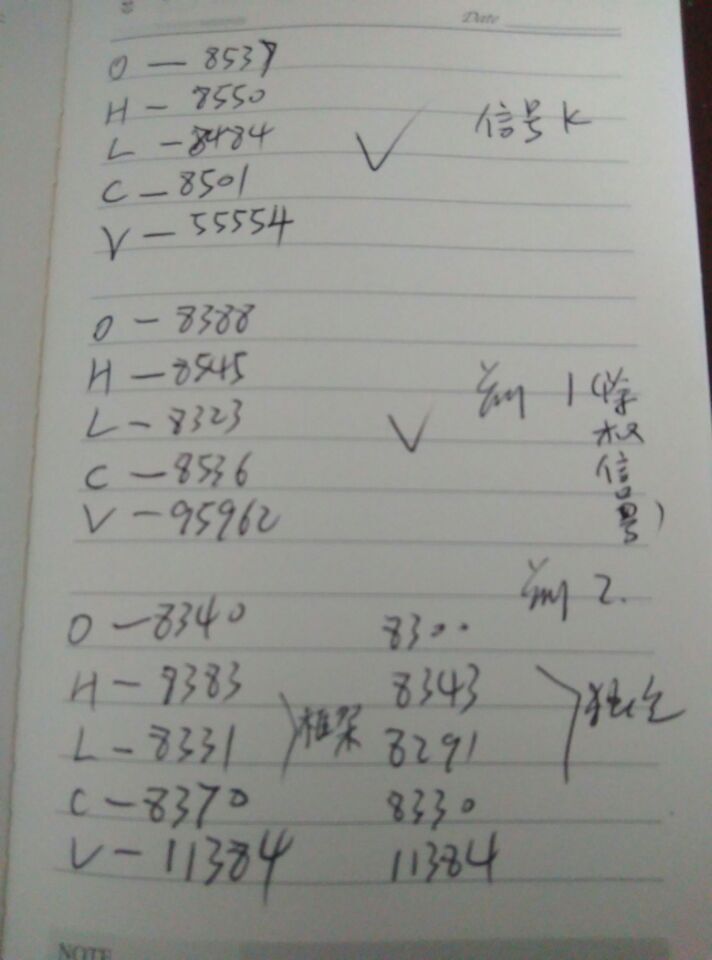 Date
O — 8537
H — 8550
信号K
L — 8484
C — 8501
V — 55554
O — 8388
H — 8545
例1(择权信号)
L — 8323
C — 8536
V — 95962
例2.
O — 8340 8300
H — 9383 8343
L — 8331 框架 8291
C — 8370 8330
V — 11384 11384
NOTE